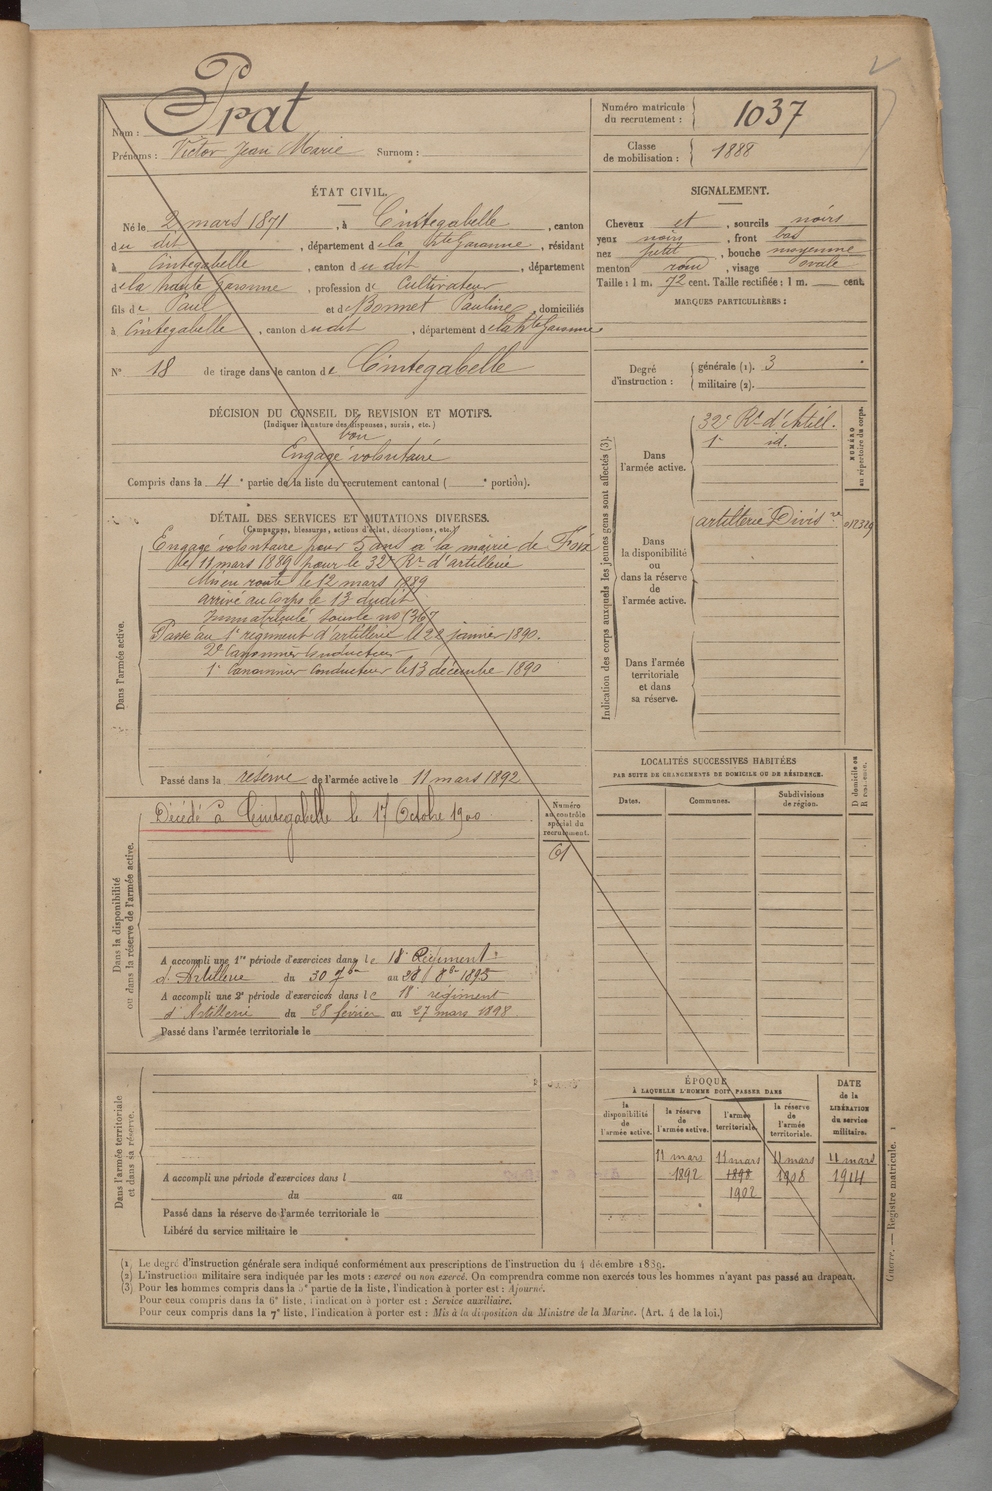 Nom : Prat
Prénoms : Victor Jean Marie Surnom :
Numéro matricule du recrutement : 1037
Classe de mobilisation : 1888
ÉTAT CIVIL.
Né le 2 mars 1871, à Cintegabelle, canton
du dit, département de la Hte Garonne, résidant
à Cintegabelle, canton du dit, département
de la haute Garonne, profession de Cultivateur
fils de Paul et de Bonnet Pauline, domiciliés
à Cintegabelle, canton du dit, département de la Hte Garonne
N° 18 de tirage dans le canton de Cintegabelle
SIGNALEMENT.
Cheveux et, sourcils noirs
yeux noirs, front bas
nez petit, bouche moyenne
menton rond, visage ovale
Taille : 1 m. 72 cent. Taille rectifiée : 1 m. cent.
MARQUES PARTICULIÈRES :
Degré d'instruction : générale (1). 3
militaire (2).
DÉCISION DU CONSEIL DE REVISION ET MOTIFS.
(Indiquer la nature des dispenses, sursis, etc.)
bon
Engagé volontaire
Compris dans la 4e partie de la liste du recrutement cantonal ( e portion).
DÉTAIL DES SERVICES ET MUTATIONS DIVERSES.
(Campagnes, blessures, actions d'éclat, décorations, etc.)
Dans l'armée active.
Engagé volontaire pour 5 ans à la mairie de Foix
le 11 mars 1889 pour le 32e Rt d'artillerie
Mis en route le 12 mars 1889
arrivé au corps le 13 dudit
Immatriculé sous le no
Passé au 1e régiment d'artillerie le janvier 1890.
2e Canonnier Conducteur
1e Canonnier Conducteur le 13 décembre 1890
Passé dans la réserve de l'armée active le 11 mars 1892
Indication des corps auxquels les jeunes gens sont affectés (3).
Dans l'armée active.
32e Rt d'Artill.
1e id.
NUMÉRO au répertoire du corps.
Dans la disponibilité ou dans la réserve de l'armée active.
artillerie Divisre
Dans l'armée territoriale et dans sa réserve.
LOCALITÉS SUCCESSIVES HABITÉES
PAR SUITE DE CHANGEMENTS DE DOMICILE OU DE RÉSIDENCE.
Dates. Communes. Subdivisions de région.
D domicile ou R résidence.
Dans la disponibilité ou dans la réserve de l'armée active.
Décédé à Cintegabelle le 17 Octobre 1900
Numéro au contrôle spécial du recrutement.
61
A accompli une 1re période d'exercices dans le 18e Régiment
d'Artillerie du 30 7bre au 8bre 1895
A accompli une 2e période d'exercices dans le 18e régiment
d'Artillerie du 28 février au 27 mars 1898
Passé dans l'armée territoriale le
Dans l'armée territoriale et dans sa réserve.
A accompli une période d'exercices dans l
du au
Passé dans la réserve de l'armée territoriale le
Libéré du service militaire le
ÉPOQUE
À LAQUELLE L'HOMME DOIT PASSER DANS
la disponibilité de l'armée active.
la réserve de l'armée active.
l'armée territoriale.
la réserve de l'armée territoriale.
DATE de la LIBÉRATION du service militaire.
11 mars 11 mars 11 mars 11 mars
1892 1898 1908 1914
1902
Guerre. — Registre matricule. 1
(1) Le degré d'instruction générale sera indiqué conformément aux prescriptions de l'instruction du 4 décembre 1889.
(2) L'instruction militaire sera indiquée par les mots : exercé ou non exercé. On comprendra comme non exercés tous les hommes n'ayant pas passé au drapeau.
(3) Pour les hommes compris dans la 5e partie de la liste, l'indication à porter est : Ajourné.
Pour ceux compris dans la 6e liste, l'indication à porter est : Service auxiliaire.
Pour ceux compris dans la 7e liste, l'indication à porter est : Mis à la disposition du Ministre de la Marine. (Art. 4 de la loi.)